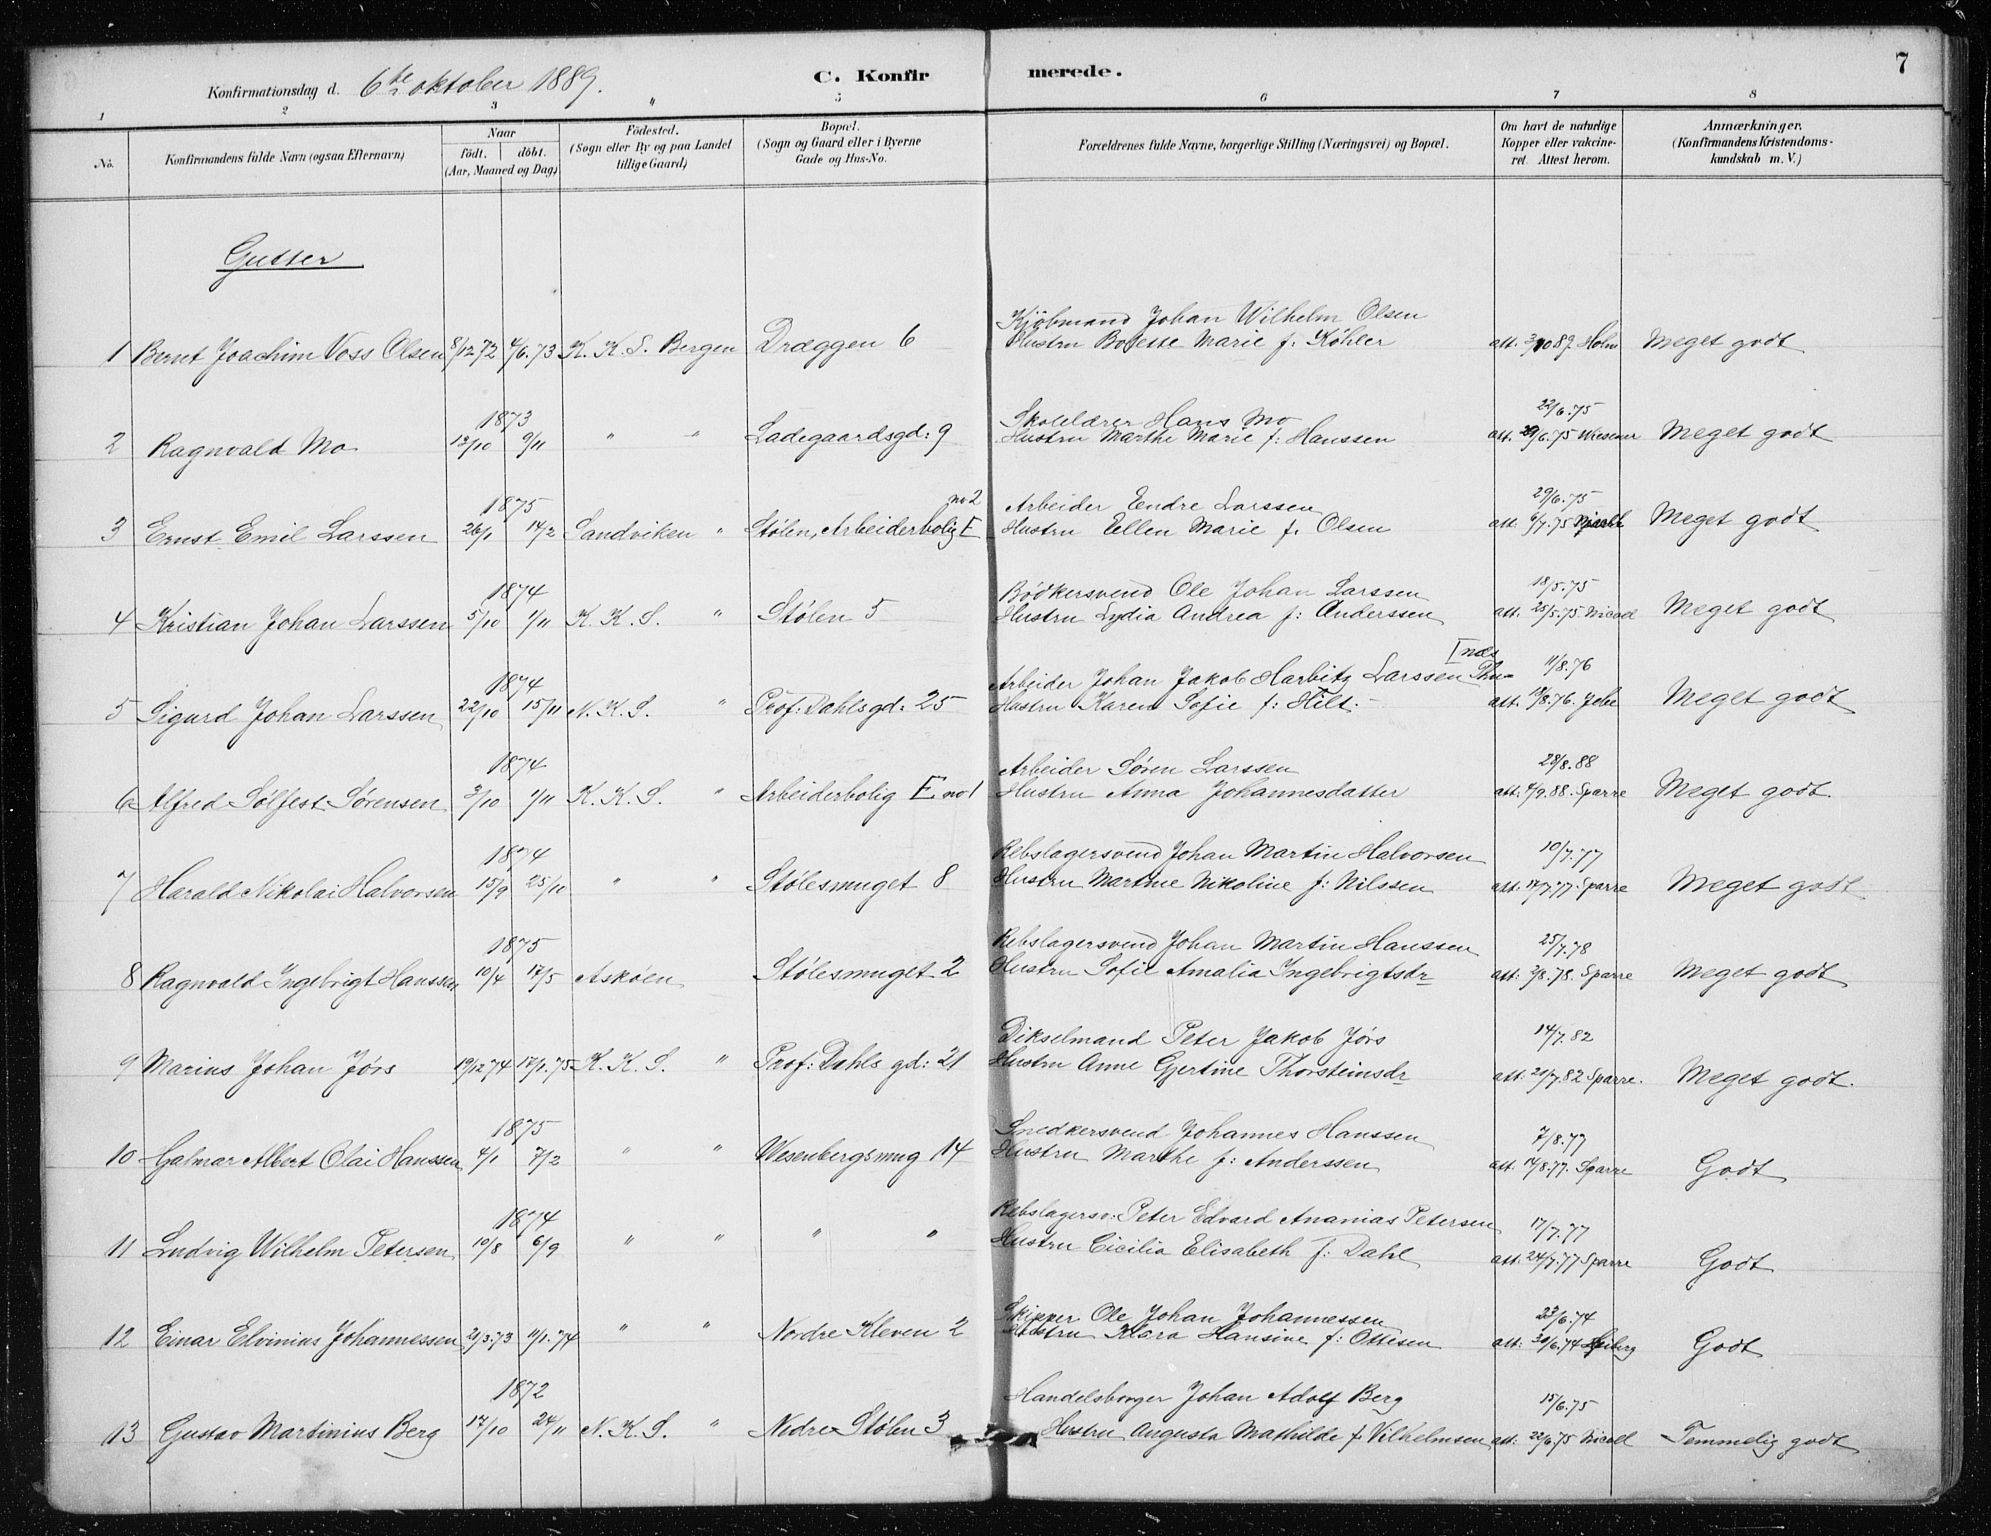 7
Konfirmationsdag d. 6te oktober 1889. C. Konfir merede.
1 2 3 " 5 6 7 8
No. Konfirmandens fulde Navn (ogsaa Efternavn) Naar födt. döbt. (Aar, Maaned og Dag) Födested. (Sogn eller By og paa Landet tillige Gaard) Bopæl. (Sogn og Gaard eller i Byerne Gade og Hus-No. Forældrenes fulde Navne, borgerlige Stilling (Næringsvei) og Bopæl. Om havt de naturlige Kopper eller vakcineret. Attest herom. Anmærkninger. (Konfirmandens Kristendomskundskab m. V.)
Gutter
Kjöbmand Johan Wilhelm Olsen
1 Bernt Joachim Voss Olsen 8/12.72 4/6.73 K. K. S. Bergen Dræggen 6 Hustru Bolette Marie f: Köhler att. 3/10 89 Holm Meget godt
1873 Skolelærer Hans Mo 22/6.75
2 Ragnvald Mo 12/10 9/11 " " Ladegaardsgd: 9 Hustru Marthe Marie f: Hanssen att. 29/6.75 Wiesener Meget godt
1875 no 2 Arbeider Endre Larssen 29/6.75
3 Ernst Emil Larssen 26/1 14/2 Sandviken " Stølen, Arbeiderbolig E Hustru Ellen Marie f. Olsen att. 6/7.75 Meget godt
1874 Bödkersvend Ole Johan Larssen 18/5.75
4 Kristian Johan Larssen 5/10 1/11 K. K. S. " Stølen 5 Hustru Lydia Andrea f: Anderssen att. 25/5.75 Nicoll Meget godt
1874 Arbeider Johan Jakob Harbitz Larssen Thu= [næs 11/8.76
5 Sigurd Johan Larssen 22/10 15/11 N. K. S. " Prof: Dahlsgd: 25 Hustru Karen Sofie f: Hilt. att. 18/8.76. Jebe Meget godt
1874 Arbeider Sören Larssen 28/8.88
6 Alfred Sölfest Sörensen 3/10 1/11 K. K. S. " Arbeiderbolig E no 1 Hustru Anna Johannesdatter att. 4/9.88. Sparre Meget godt.
1874 Rebslagersvend Johan Martin Halvorsen 10/7.77
7 Harald Nikolai Halvorsen 15/9 25/10 " " Stølesmuget 8 Hustru Martine Nikoline f: Nilssen att. 17/7.77. Sparre Meget godt
1875 Rebslagersvend Johan Martin Hanssen 25/7.78
8 Ragnvald Ingebrigt Hanssen 10/4 17/5 Asköen Stølesmuget 2 Hustru Sofie Amalia Ingebrigtsdr att: 2/8.78. Sparre Meget godt
Dikselmand Peter Jakob Jörs 14/7.82
9 Marius Johan Jörs 19/12 74 17/1.75 K. K. S. " Prof: Dahls gd: 21 Hustru Anne Gjertine Thorsteinsdr att: 21/7.82 Sparre. Meget godt.
1875 Snedkersvend Johannes Hanssen 7/8.77
10 Hjalmar Albert Olai Hanssen 4/1 7/2 " " Wesenbergsmug 14 Hustru Marthe f: Anderssen att. 14/8.77. Sparre Godt
1874 Rebslagersv: Peter Edvard Ananias Petersen 17/7.77
11 Ludvig Wilhelm Petersen 10/8 6/9 " " " " Hustru Cicilia Elisabeth f: Dahl att. 24/7.77 Sparre Godt
Skipper Ole Johan Johannessen 23/6.74
12 Einar Elvinius Johannessen 21/3.73 11/1.74 " " Nordre Kleven 2 Hustru Klara Hansine f: Ottesen att: 30/6.74 Godt
1872 Handelsborger Johan Adolf Berg 15/6.75
13 Gustav Martinius Berg 17/10 24/11 N. K. S. " Nedre Stølen 3 Hustru Augusta Mathilde f. Vilhelmsen att: 22/6.75 Nicoll Temmelig godt